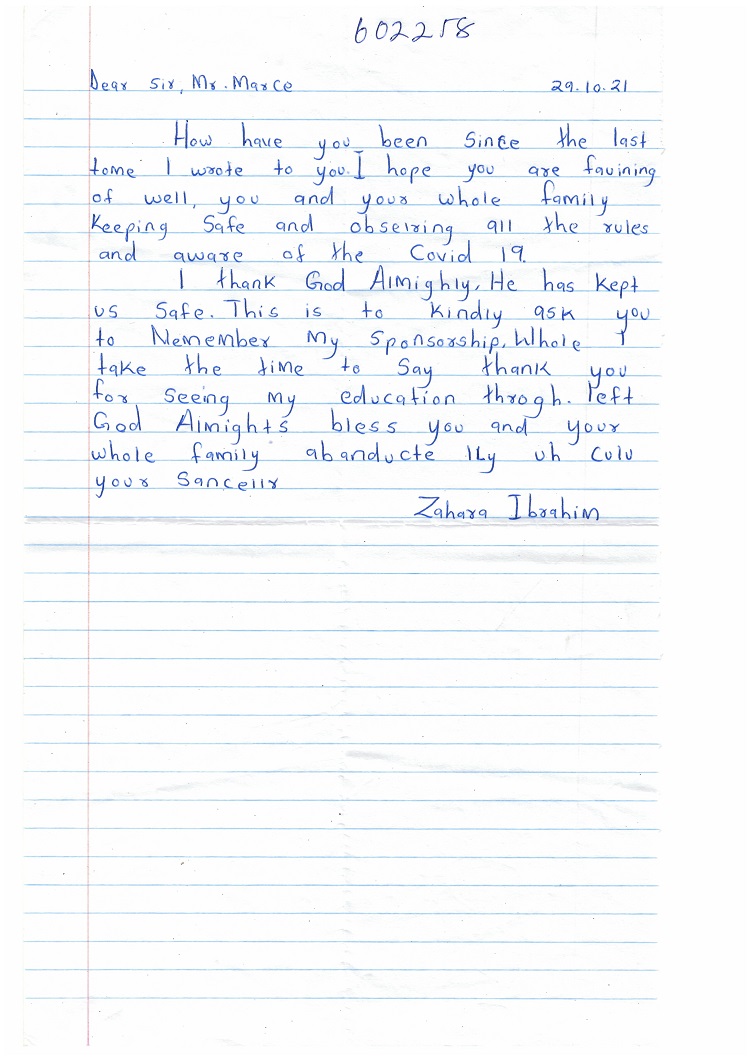 602258
Dear Sir, Mr. Marce 29.10.21
How have you been Since the last
tome I wrote to you. I hope you are fauining
of well, you and your whole family
Keeping Safe and obseiring all the rules
and aware of the Covid 19.
I thank God Almighly, He has Kept
us Safe. This is to Kindly ask you
to Nemember My Sponsorship. Whole I
take the time to Say thank you
for Seeing My education throgh. left
God Almights bless you and your
whole family abanducte lly uh Culu
your Sancellr
Zahara Ibrahim